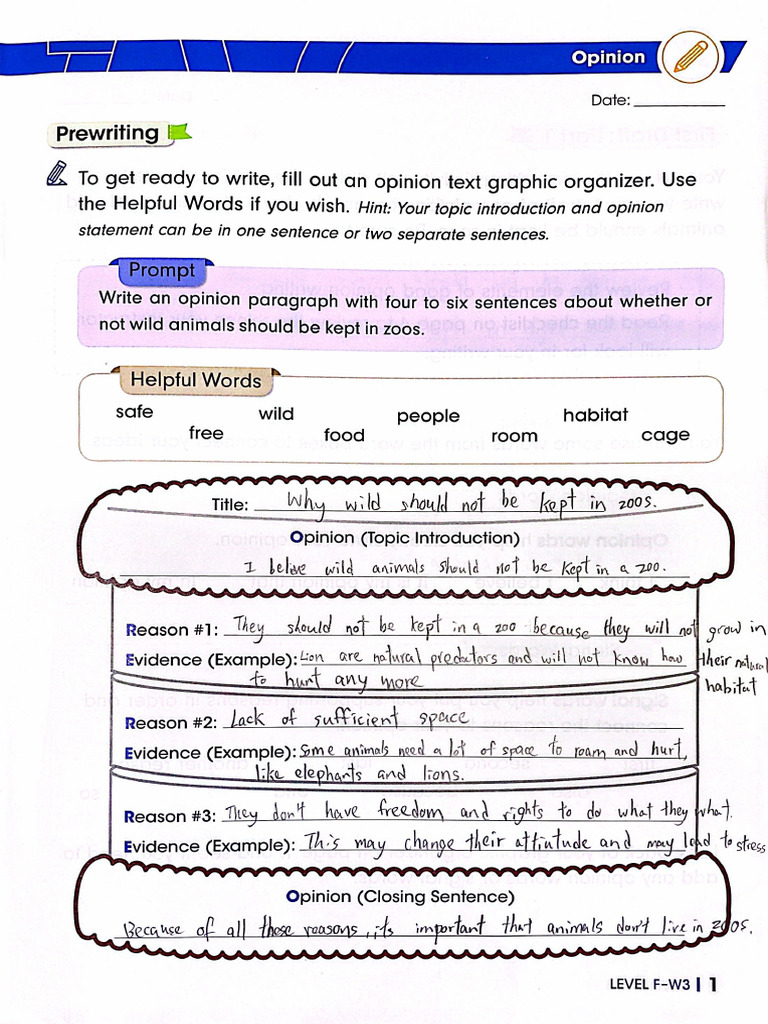 Opinion
Date:
Prewriting
To get ready to write, fill out an opinion text graphic organizer. Use
the Helpful Words if you wish. Hint: Your topic introduction and opinion
statement can be in one sentence or two separate sentences.
Prompt
Write an opinion paragraph with four to six sentences about whether or
not wild animals should be kept in zoos.
Helpful Words
safe wild people habitat
free food room cage
Title: Why wild should not be kept in zoos.
Opinion (Topic Introduction)
I belive wild animals should not be kept in a zoo.
Reason #1: They should not be kept in a zoo because they will not grow in
their natural
habitat
Evidence (Example): Lion are natural predactors and will not know how
to hurt any more
Reason #2: Lack of sufficient space
Evidence (Example): Some animals need a lot of space to roam and hurt,
like elephants and lions.
Reason #3: They don't have freedom and rights to do what they what.
Evidence (Example): This may change their attitutude and may lead to stress
Opinion (Closing Sentence)
Because of all these reasons, its important that animals don't live in zoos.
LEVEL F-W3 | 1